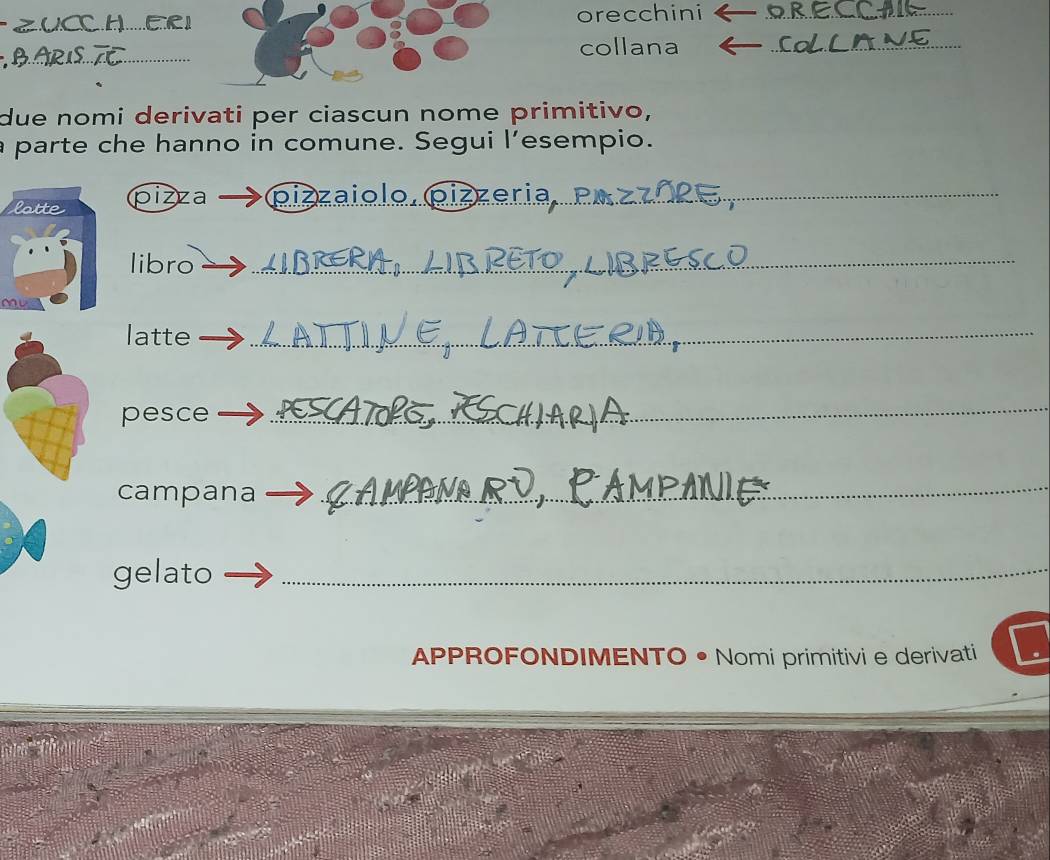 ZUCCHERI
orecchini ORECCHIE
BARISTE
collana COLLANE
due nomi derivati per ciascun nome primitivo,
a parte che hanno in comune. Segui l'esempio.
pizza → pizzaiolo, pizzeria,
latte
libro → LIBRERIA, LIBRETO, LIBRESCO
mu
latte → LATTINE, LATTERIA,
pesce → PESCATORE, PESCHIARIA
campana → CAMPANARO, CAMPANIE
gelato →
APPROFONDIMENTO • Nomi primitivi e derivati